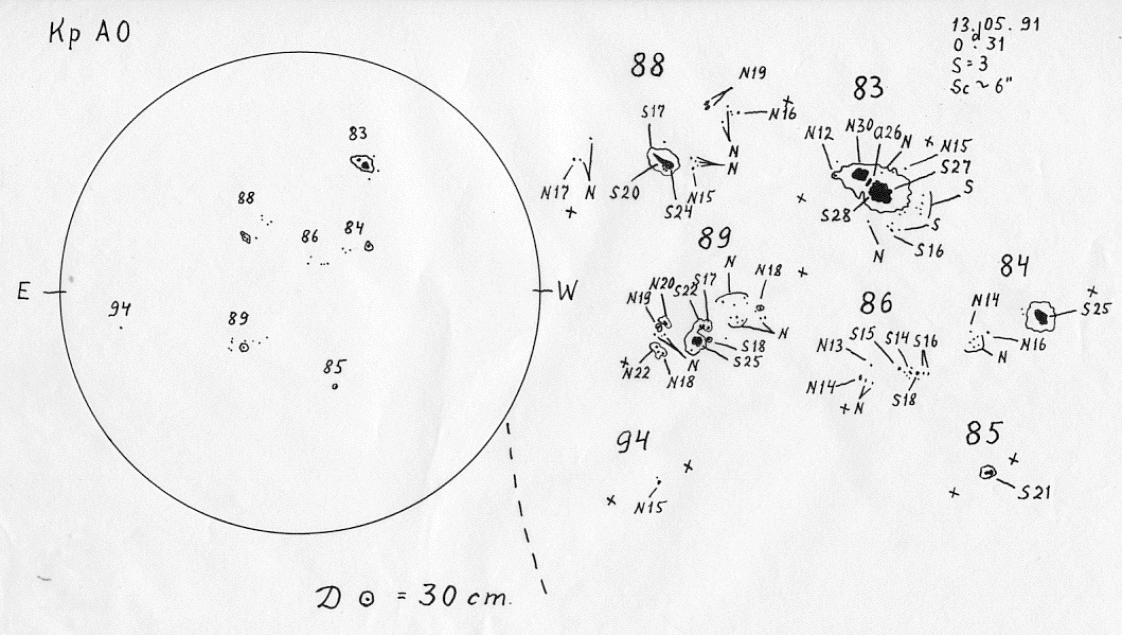 Кр АО
13.05.91
0ᵈ.31
S=3
Sc ~ 6"
83
88
86
84
E
W
94
89
85
D ⊙ = 30 cm.
88
N19
N16
S17
N
N
N17
N
S20
S24
N15
83
N12
N30
a26
N
N15
S27
S
S28
S
S16
N
89
N
N18
N20
S22
S17
N19
N
S18
S25
N22
N18
N
86
S15
S14
S16
N13
N14
N
S18
84
N14
S25
N16
N
94
N15
85
S21